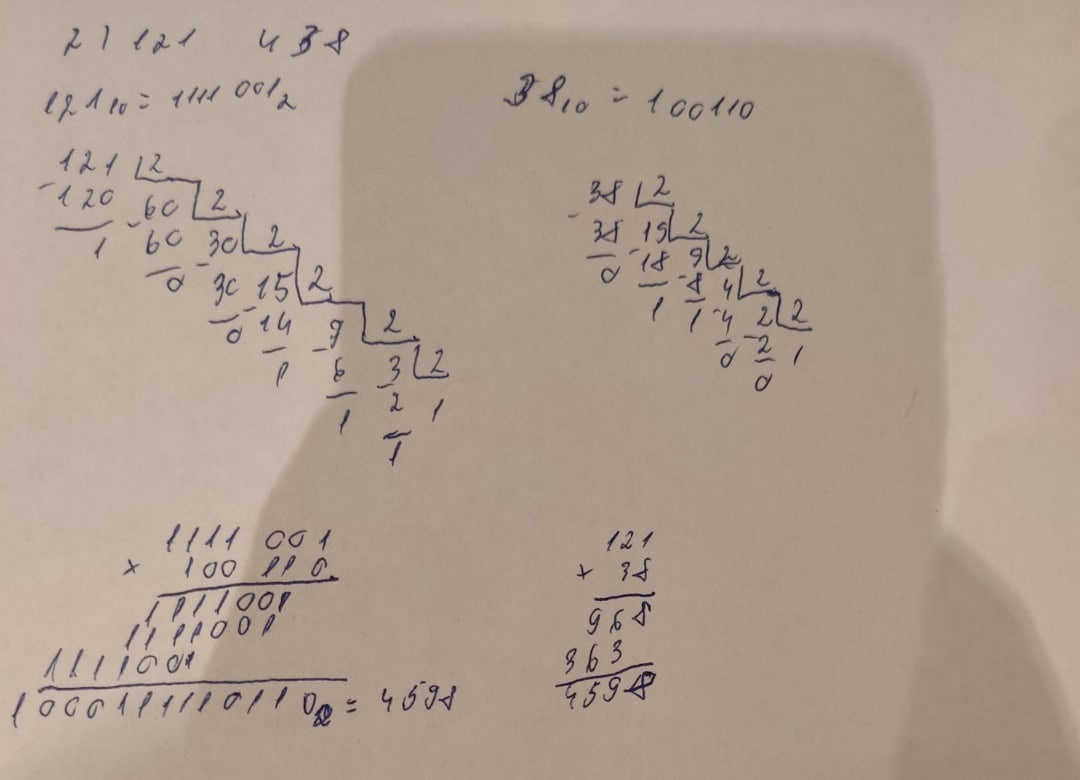 2) 121 и 38
121₁₀ = 1111001₂
38₁₀ = 100110
121 | 2
- 120 60 | 2
1 - 60 30 | 2
0 - 30 15 | 2
0 - 14 7 | 2
1 - 6 3 | 2
1 - 2 1
1
38 | 2
- 38 19 | 2
0 - 18 9 | 2
1 - 8 4 | 2
1 - 4 2 | 2
0 - 2 1
0
1111 001
× 100 110
1111001
1111001
1111001
1000111110110₂ = 4598
121
× 38
968
363
4598